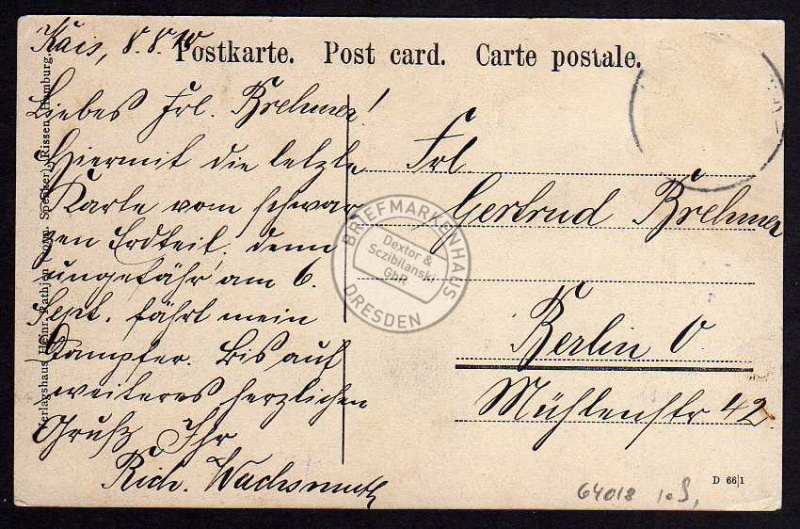 Kais, 8.8.10
Postkarte. Post card. Carte postale.
Liebes Frl. Brehmer!
Hiermit die letzte
Karte vom schwar
zen Erdteil, denn
ungefähr am 6.
Sept. fährt mein
Dampfer. Bis auf
weiteres herzlichen
Gruß Ihr
Rich. Wachsmuth
Frl
Gertrud Brehmer
Berlin O.
Mühlenstr 42
Verlagshaus Heinr. Rathjen (vorm. Specker), Rissen-Hamburg.
BRIEFMARKENHAUS
Dextor &
Sczibilanski
GbR
DRESDEN
D 66|1
64018